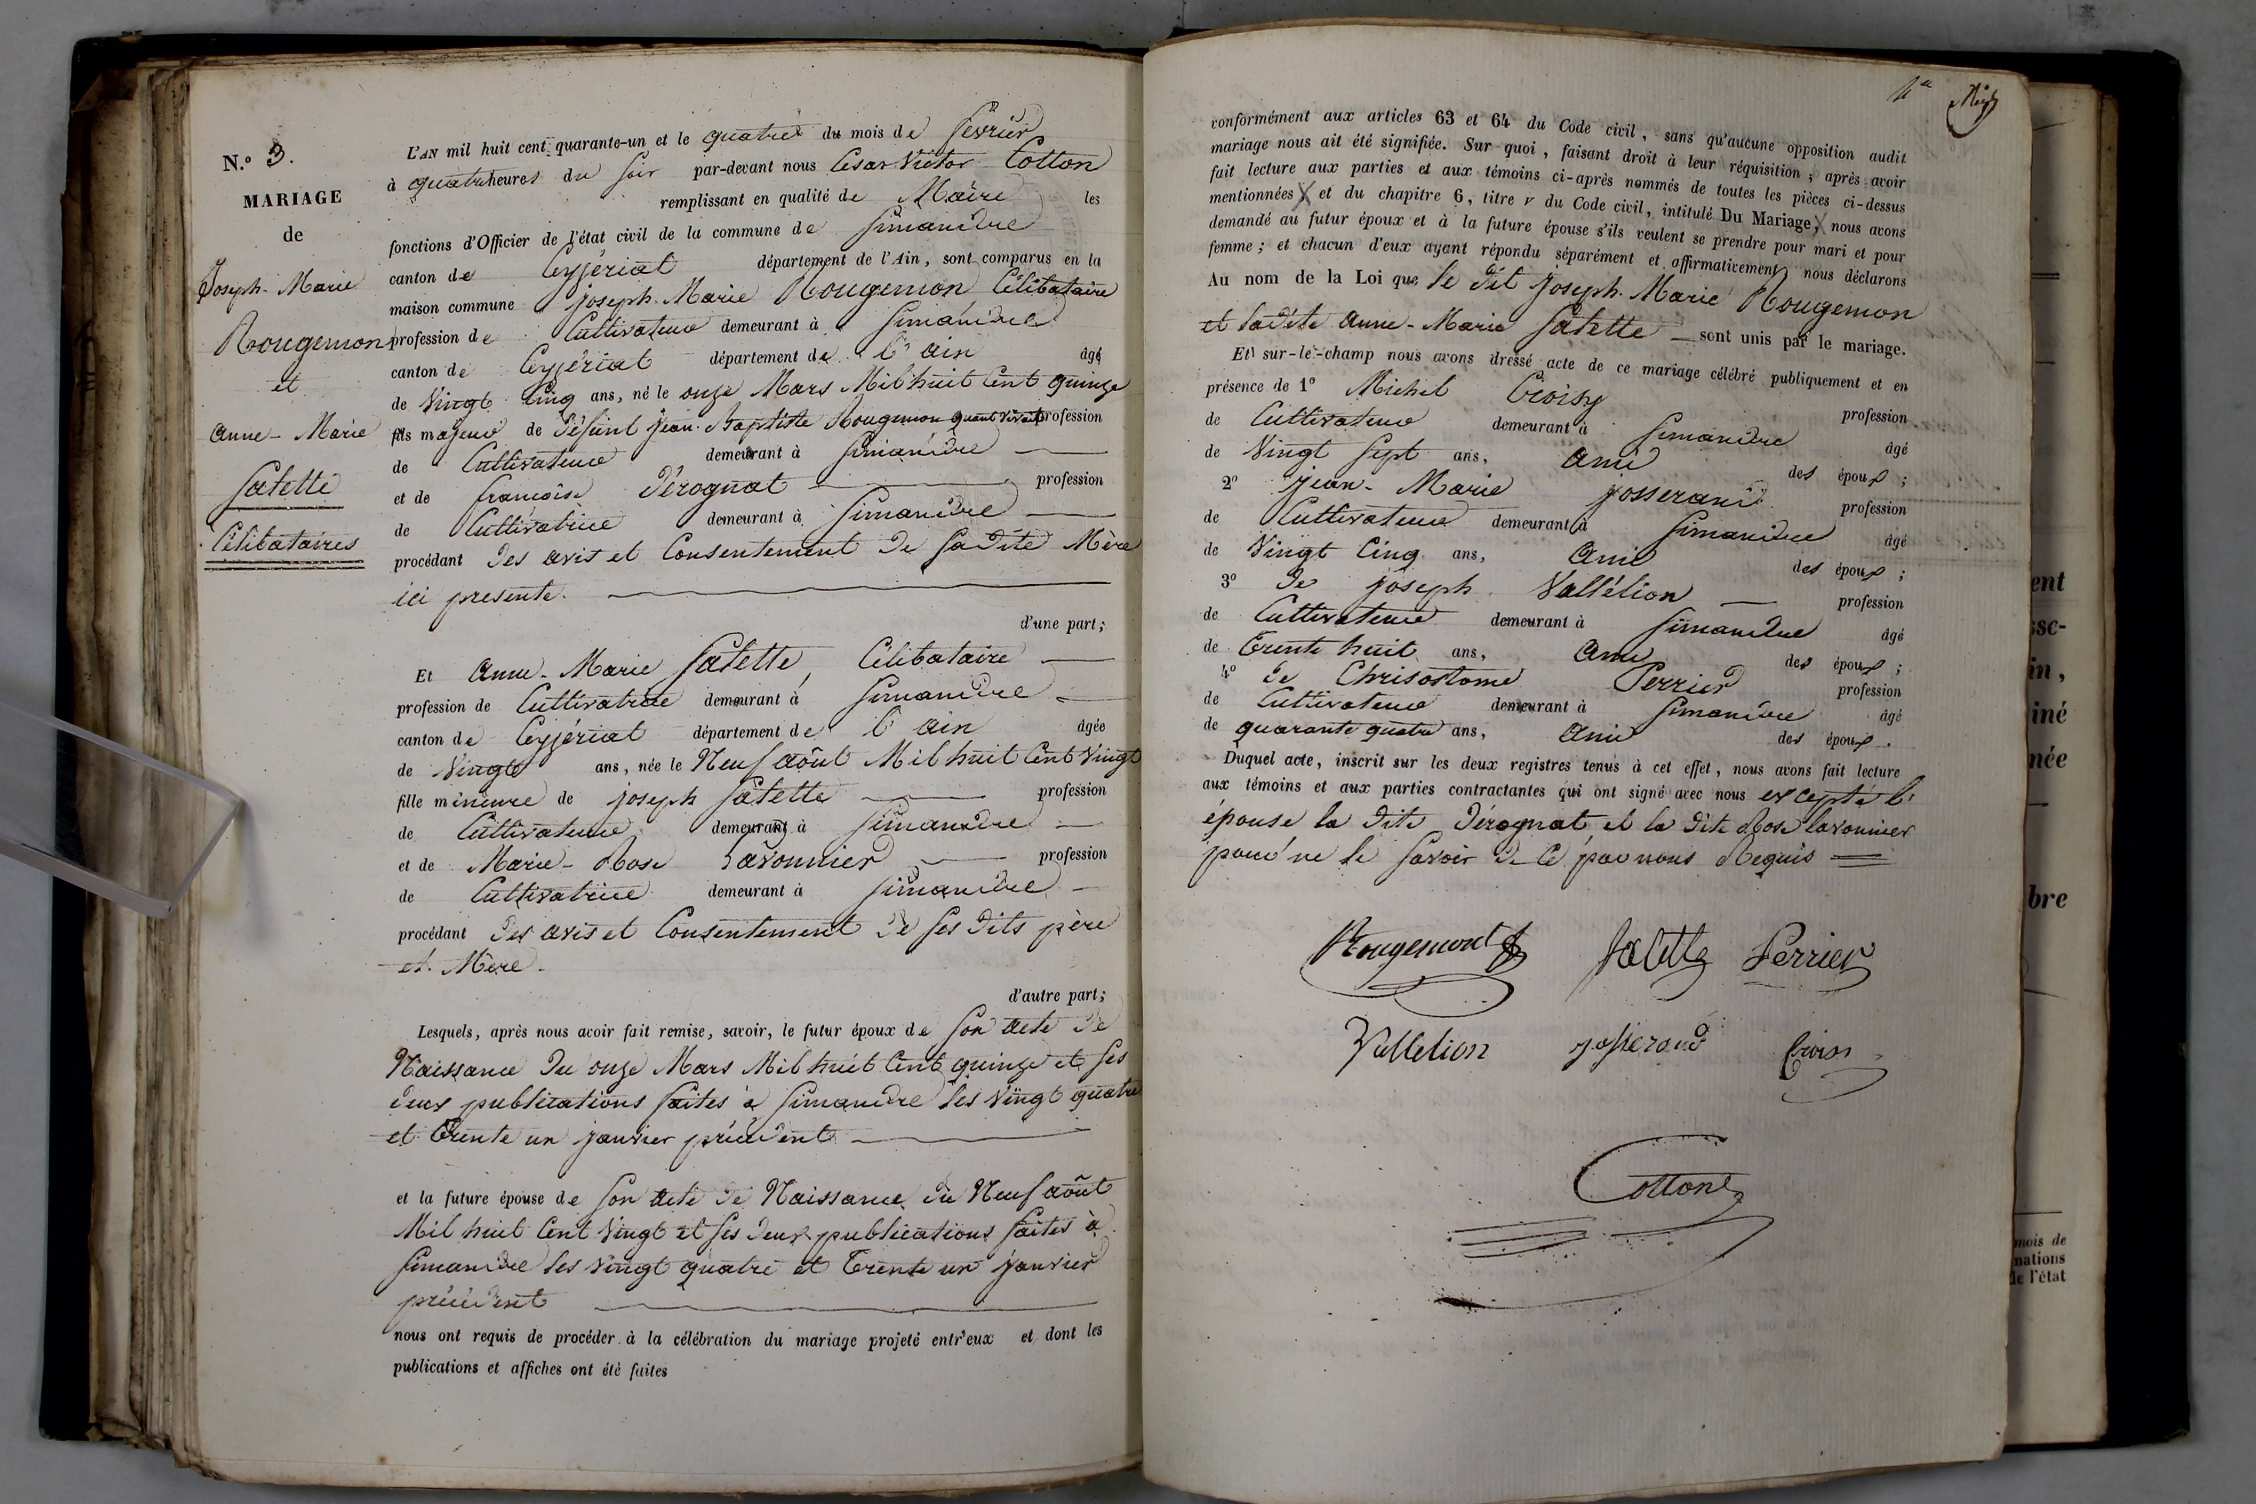 N.o 3.
MARIAGE
de
Joseph-Marie
Rougemon
et
Anne-Marie
Salette
Célibataires
L'AN mil huit cent quarante-un et le quatre du mois de février
à quatre heures du soir par-devant nous César Victor Cotton
remplissant en qualité de Maire les
fonctions d'Officier de l'état civil de la commune de Simandre
canton de Ceyzériat département de l'Ain, sont comparus en la
maison commune Joseph-Marie Rougemon Célibataire
profession de Cultivateur demeurant à Simandre
canton de Ceyzériat département de l'ain âgé
de Vingt Cinq ans, né le onze Mars Mil huit Cent quinze
fils majeur de défunt Jean-Baptiste Rougemon quant vivait profession
de Cultivateur demeurant à Simandre
et de françoise Dérognat profession
de Cultivatrice demeurant à Simandre
procédant des avis et Consentement de sa dite Mère
ici présente.
d'une part;
Et Anne-Marie Salette, Célibataire
profession de Cultivatrice demeurant à Simandre
canton de Ceyzériat département de l'ain âgée
de Vingt ans, née le Neuf août Mil huit Cent Vingt
fille mineure de Joseph Salette profession
de Cultivateur demeurant à Simandre
et de Marie-Rose Lavonnier profession
de Cultivatrice demeurant à Simandre
procédant des avis et Consentement de ses dits père
et Mère.
d'autre part;
Lesquels, après nous avoir fait remise, savoir, le futur époux de son acte de
Naissance du onze Mars Mil huit Cent quinze et ses
deux publications faites à Simandre les Vingt quatre
et Trente un janvier précédent
et la future épouse de son acte de Naissance du Neuf août
Mil huit Cent Vingt et ses deux publications faites à
Simandre les vingt quatre et Trente un janvier
précédent
nous ont requis de procéder à la célébration du mariage projeté entr'eux et dont les
publications et affiches ont été faites
conformément aux articles 63 et 64 du Code civil, sans qu'aucune opposition audit
mariage nous ait été signifiée. Sur quoi, faisant droit à leur réquisition; après avoir
fait lecture aux parties et aux témoins ci-après nommés de toutes les pièces ci-dessus
mentionnées, et du chapitre 6, titre v du Code civil, intitulé Du Mariage, nous avons
demandé au futur époux et à la future épouse s'ils veulent se prendre pour mari et pour
femme; et chacun d'eux ayant répondu séparément et affirmativement, nous déclarons
Au nom de la Loi que le dit Joseph-Marie Rougemon
et la dite Anne-Marie Salette sont unis par le mariage.
Et sur-le-champ nous avons dressé acte de ce mariage célébré publiquement et en
présence de 1o Michel Croisy profession
de Cultivateur demeurant à Simandre âgé
de Vingt Sept ans, ami des époux;
2o Jean-Marie Josserand profession
de Cultivateur demeurant à Simandre âgé
de Vingt Cinq ans, ami des époux;
3o De Joseph Vallélion profession
de Cultivateur demeurant à Simandre âgé
de Trente huit ans, ami des époux;
4o de Chrisostome Perrier profession
de Cultivateur demeurant à Simandre âgé
de quarante quatre ans, ami des époux.
Duquel acte, inscrit sur les deux registres tenus à cet effet, nous avons fait lecture
aux témoins et aux parties contractantes qui ont signé avec nous excepté l'
épouse la dite Dérognat et la dite Rose Lavonnier
pour ne le savoir de ce par nous Requis
Rougemont Salette Perrier
Vallelion Josserand Croisy
Cotton
ent
in,
iné
née
bre
mois de
nations
de l'état